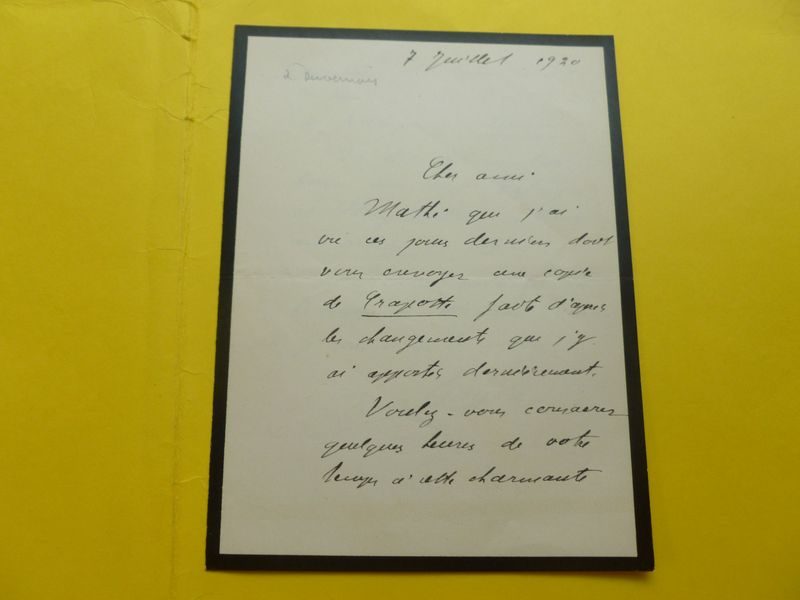 7 Juillet 1920
à Duvernois
Cher ami
Mathé que j'ai
vu ces jours derniers doit
vous envoyer une copie
de faite d'après
les changements que j'y
ai apportés dernièrement.
Voulez-vous consacrer
quelques heures de votre
temps à cette charmante